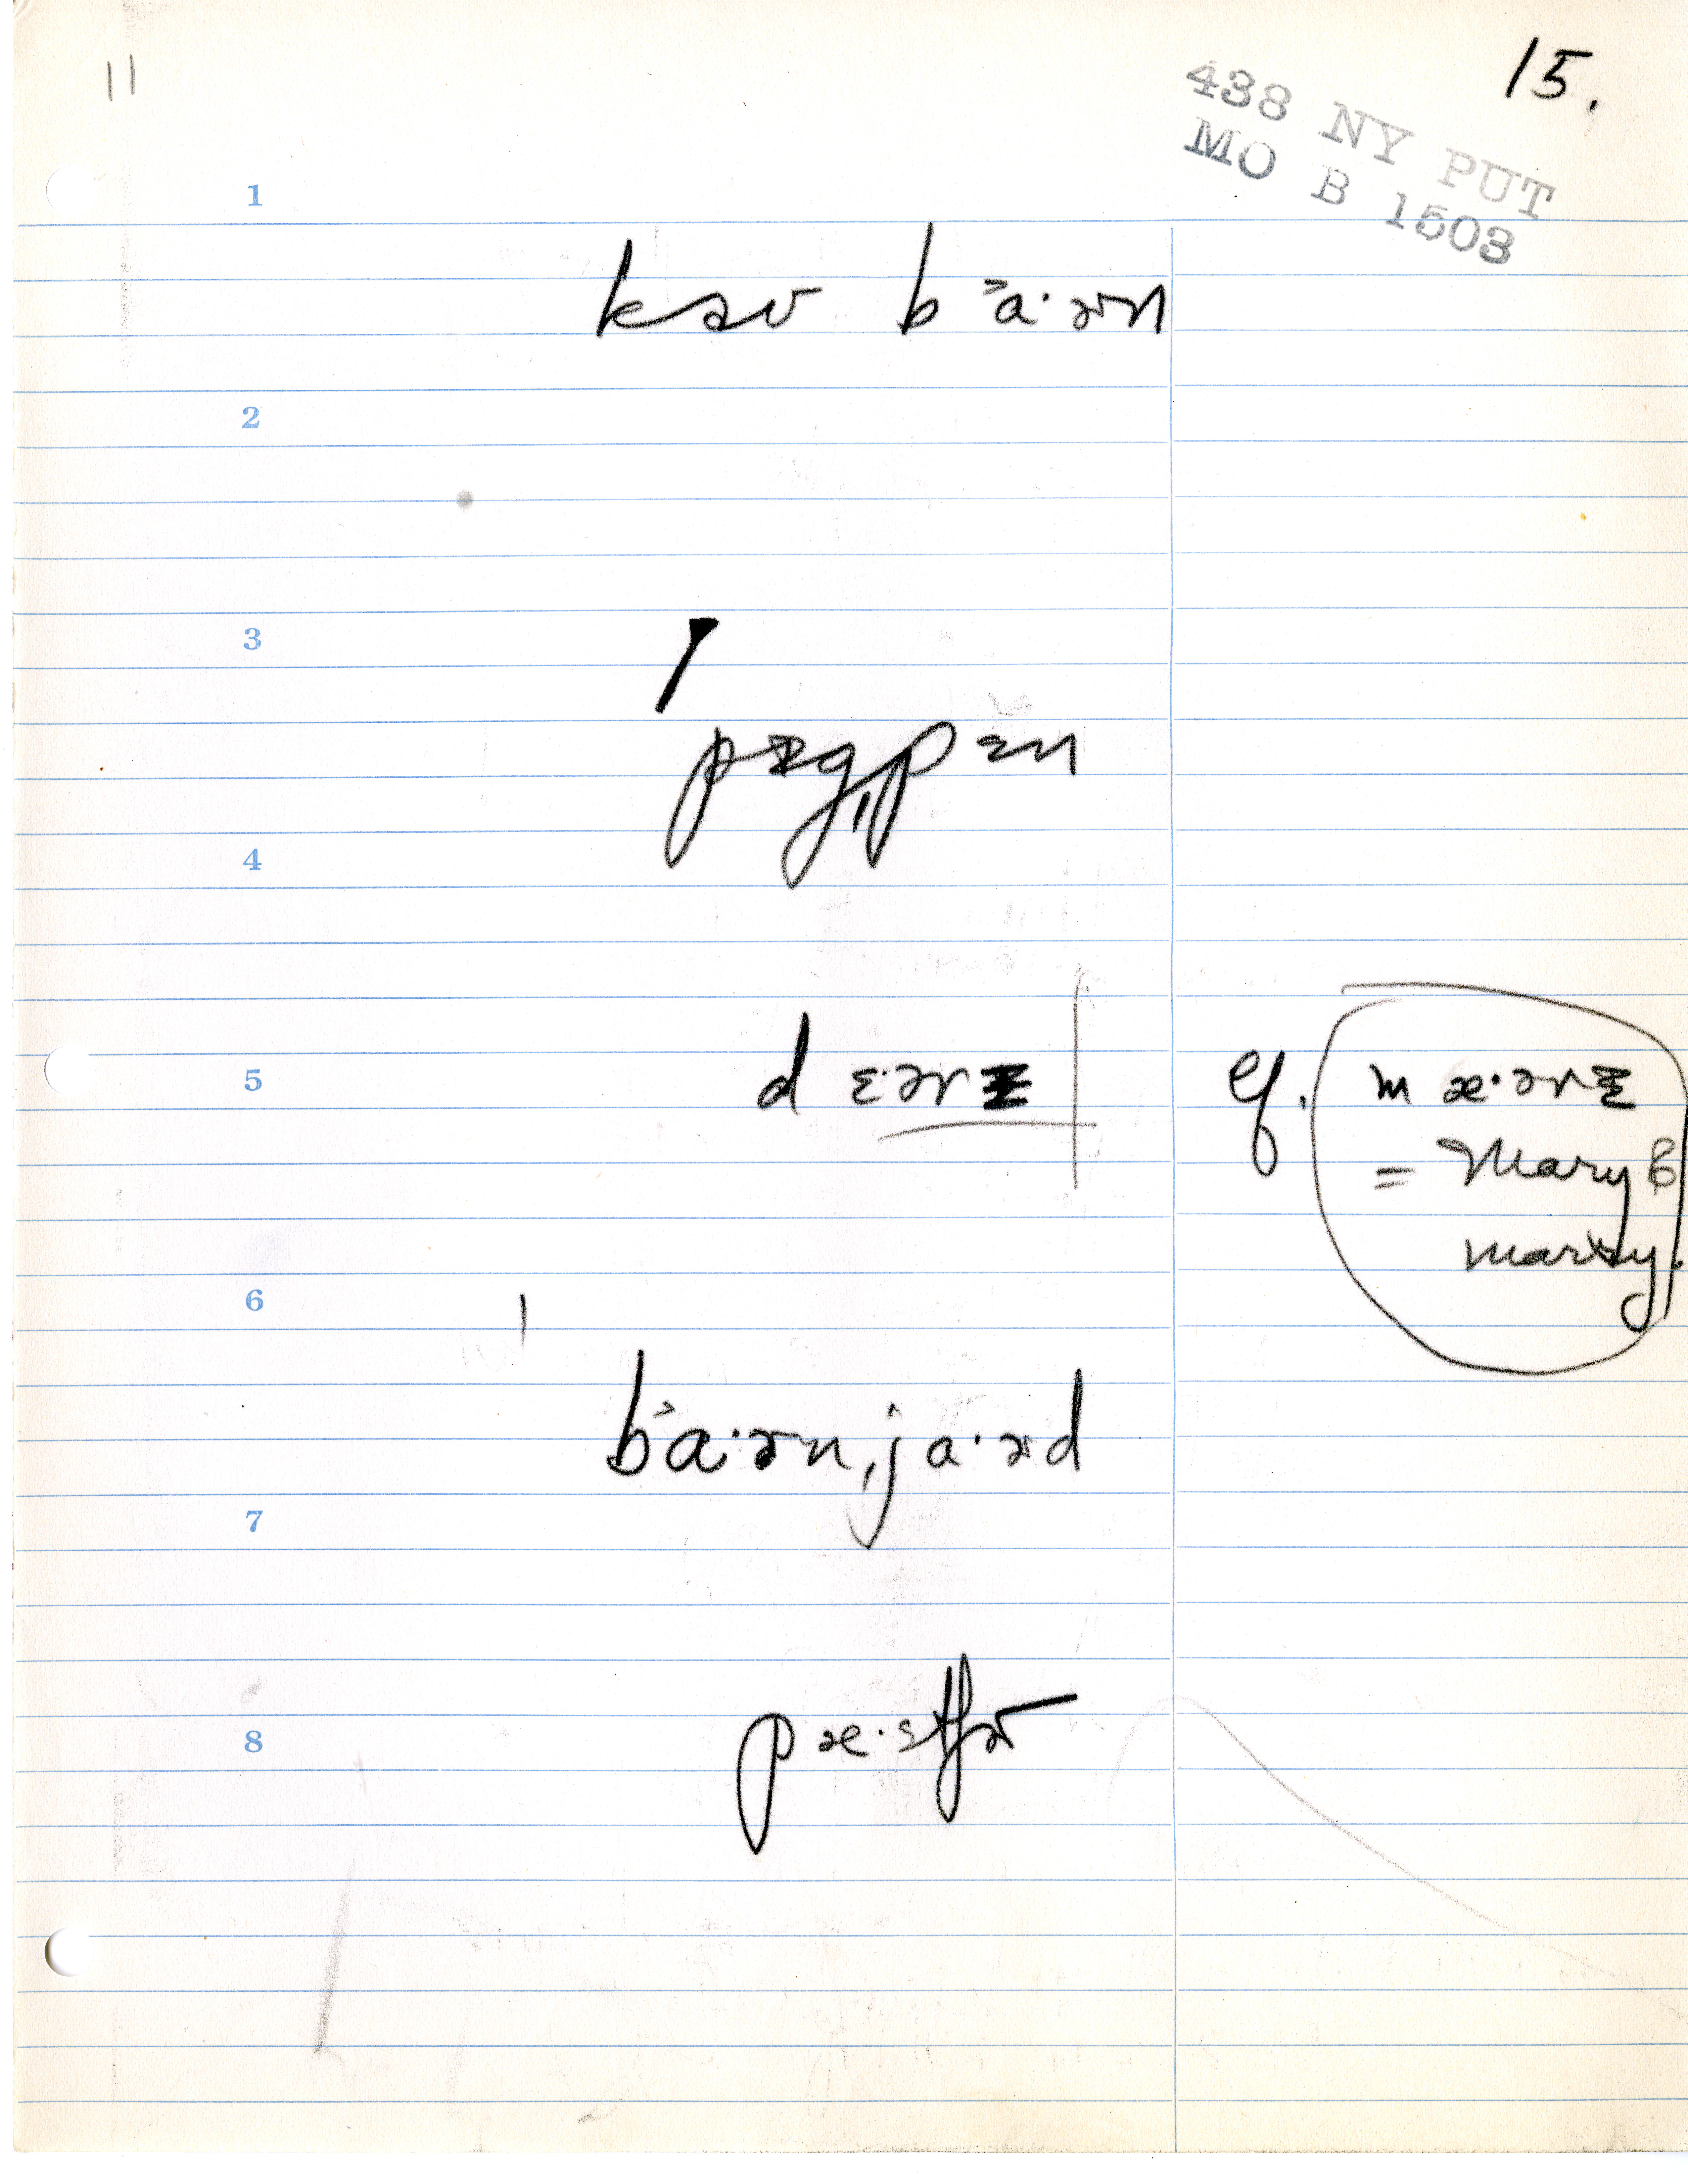 11
15.
438 NY PUT
MO B 1503
1
kaʊ b ˃a·ɚn
2
3
pɪgˌpɛn
4
5 dɛ·ɚɪ cf. mæ·ɚɪ
= Mary &
marry.
6
b˃a·ɚnˌja·ɚd
7
8 pæ·stʃɚ